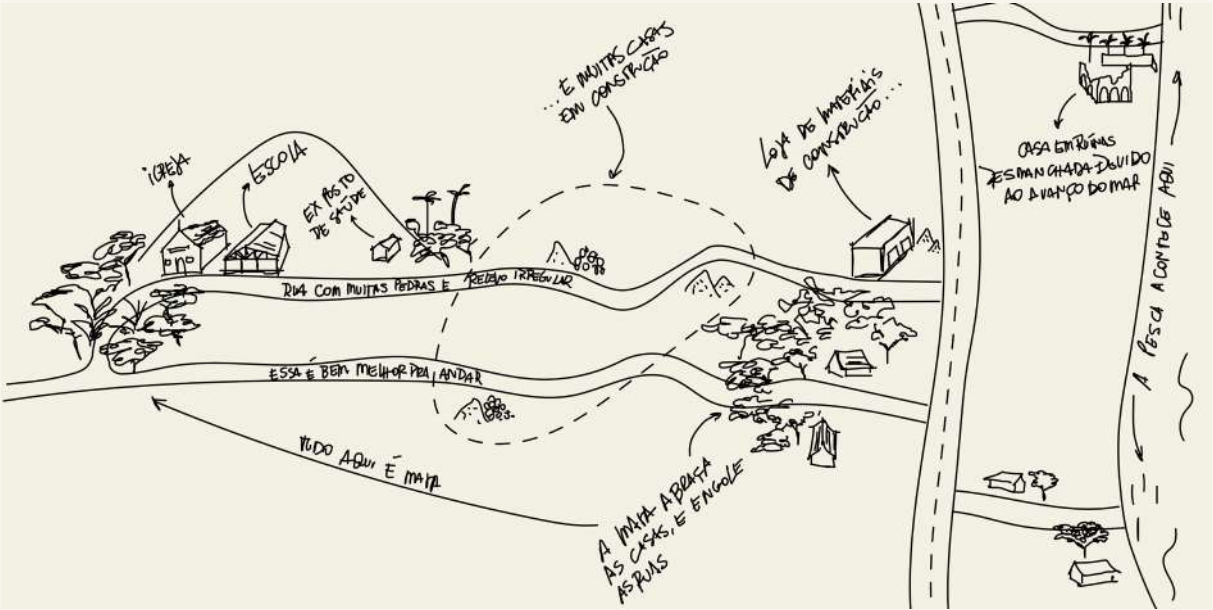 IGREJA
ESCOLA
EX POSTO
DE SAÚDE
...E MUITAS CASAS
EM CONSTRUÇÃO
LOJA DE MATERIAIS
DE CONSTRUÇÃO...
CASA EM RUÍNAS
ESMANCHADA DEVIDO
AO AVANÇO DO MAR
A PESCA ACONTECE AQUI
RUA COM MUITAS PEDRAS E RELEVO IRREGULAR
ESSA É BEM MELHOR PRA ANDAR
TUDO AQUI É MATA
A MATA ABRAÇA
AS CASAS, E ENGOLE
AS RUAS